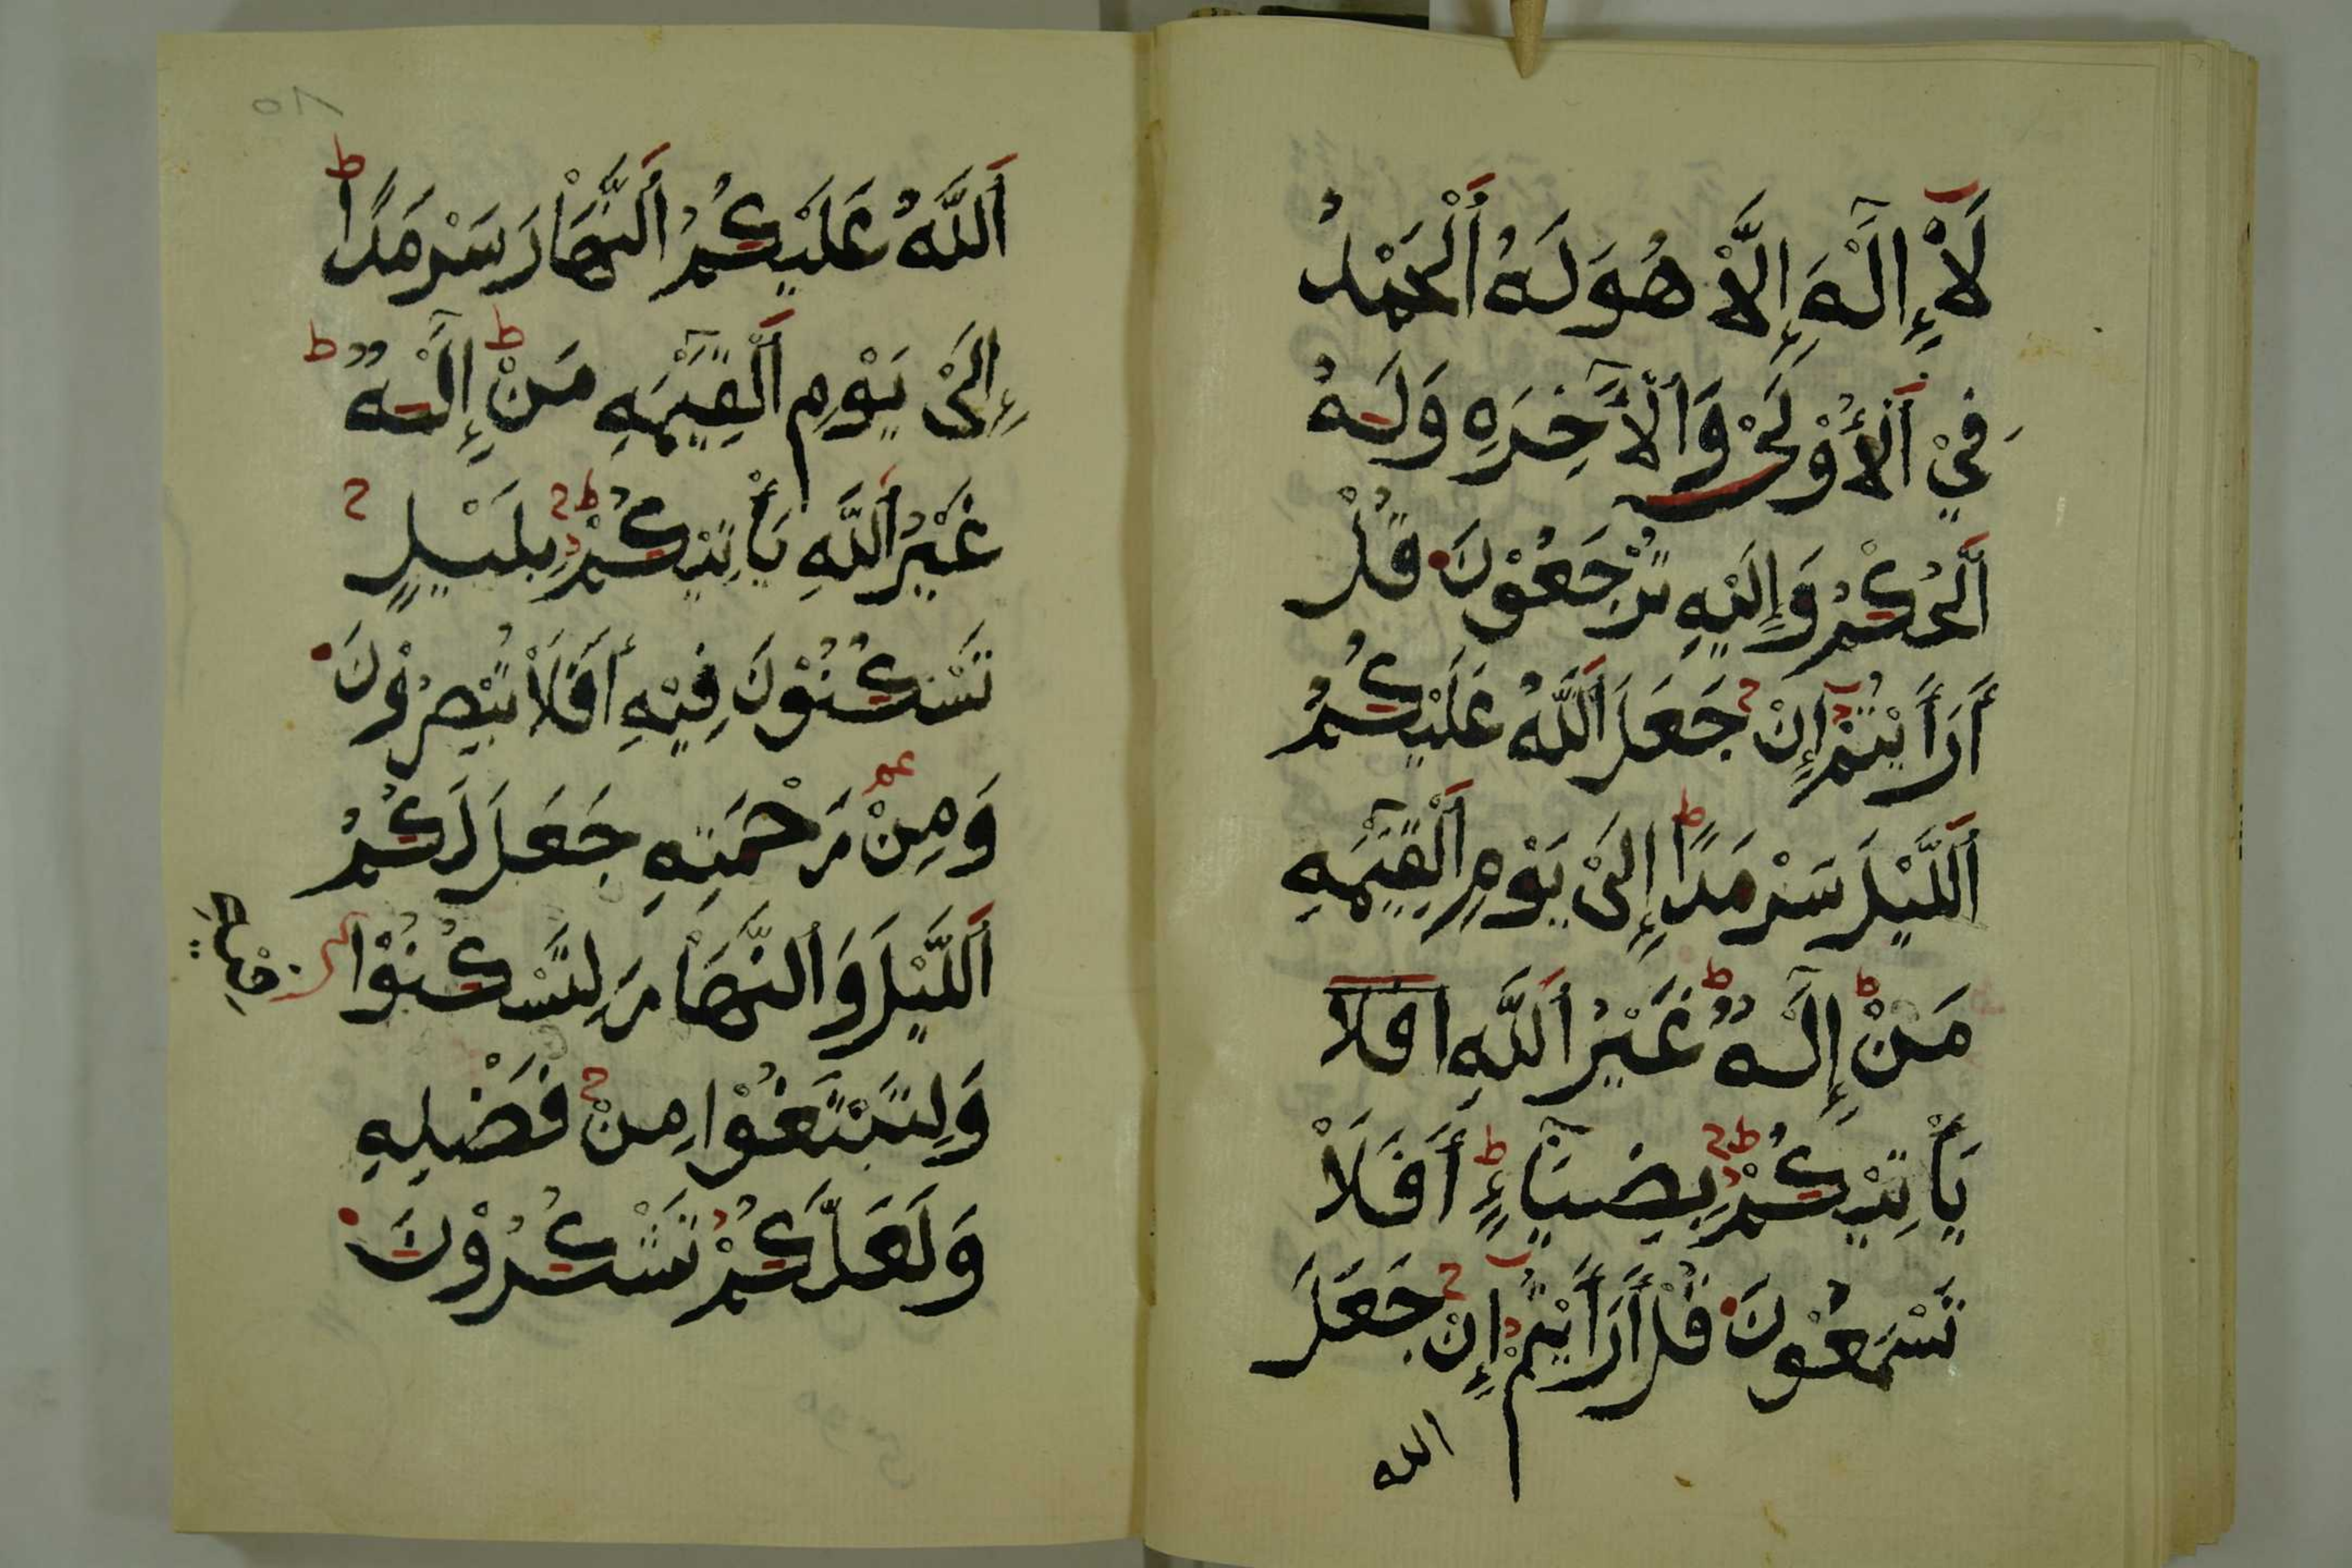 لَآ إِلَٰهَ إِلَّا هُوَ لَهُ ٱلْحَمْدُ
فِيْ ٱلْأُوْلَىٰ وَٱلْآخِرَهِ وَلَهُ
ٱلْحُكْمُ وَإِلَيْهِ تُرْجَعُوْنَ قُلْ
أَرَأَيْتُمْ إِنْ جَعَلَ ٱللَّهُ عَلَيْكُمُ
ٱللَّيْلَ سَرْمَدًا إِلَىٰ يَوْمِ ٱلْقِيَٰمَهِ
مَنْ إِلَٰهٌ غَيْرُ ٱللَّهِ افلا
يَأْتِيْكُمْ بِضِيَآءٍ أَفَلَا
تَسْمَعُوْنَ قُلْ أَرَأَيْتُمْ إِنْ جَعَلَ
الله
ٱللَّهُ عَلَيْكُمُ ٱلنَّهَارَ سَرْمَدًا
إِلَىٰ يَوْمِ ٱلْقِيَٰمَهِ مَنْ إِلَٰهٌ
غَيْرُ ٱللَّهِ يَأْتِيْكُمْ بِلَيْلٍ
تَسْكُنُوْنَ فِيْهِ أَفَلَا تُبْصِرُوْنَ
وَمِنْ رَحْمَتِهِ جَعَلَ لَكُمُ
ٱللَّيْلَ وَٱلنَّهَارَ لِتَسْكُنُوْا
فِيْهِ
وَلِتَبْتَغُوْا مِنْ فَضْلِهِ
وَلَعَلَّكُمْ تَشْكُرُوْنَ